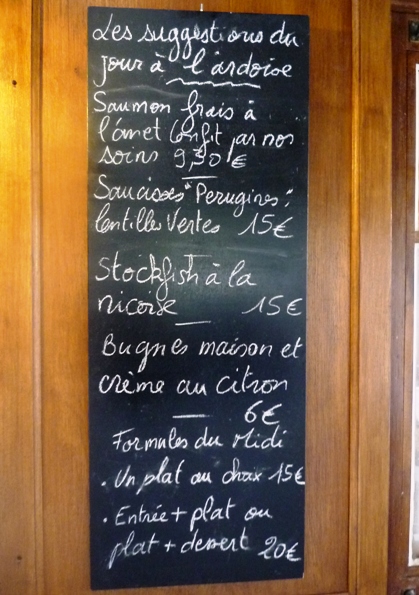 Les suggestions du
jour à l'ardoise
Saumon frais à
l'ânet Confit par nos
soins 9,50 €
Saucisses "Perugines",
lentilles Vertes 15€
Stockfish à la
niçoise 15€
Bugnes maison et
crème au citron
6€
Formules du Midi
. Un plat au choix 15€
. Entrée + plat ou
plat + dessert 20€